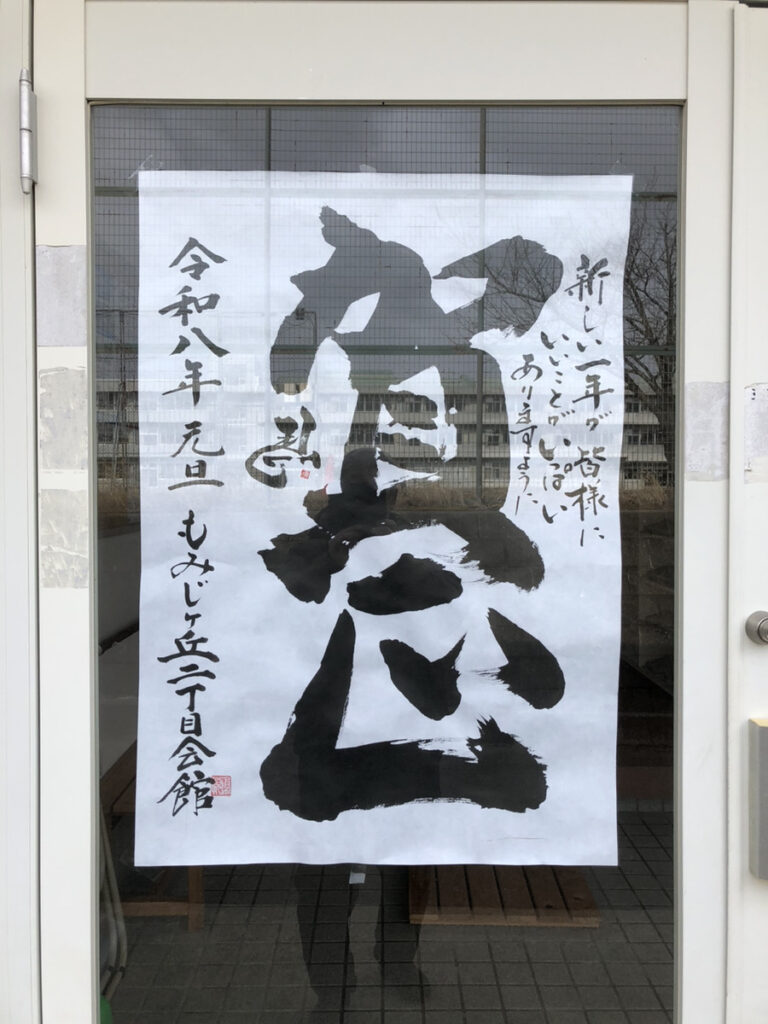 新しい一年が皆様に
いいことがいっぱい
ありますように
賀正
令和八年 元旦 もみじヶ丘二丁目会館